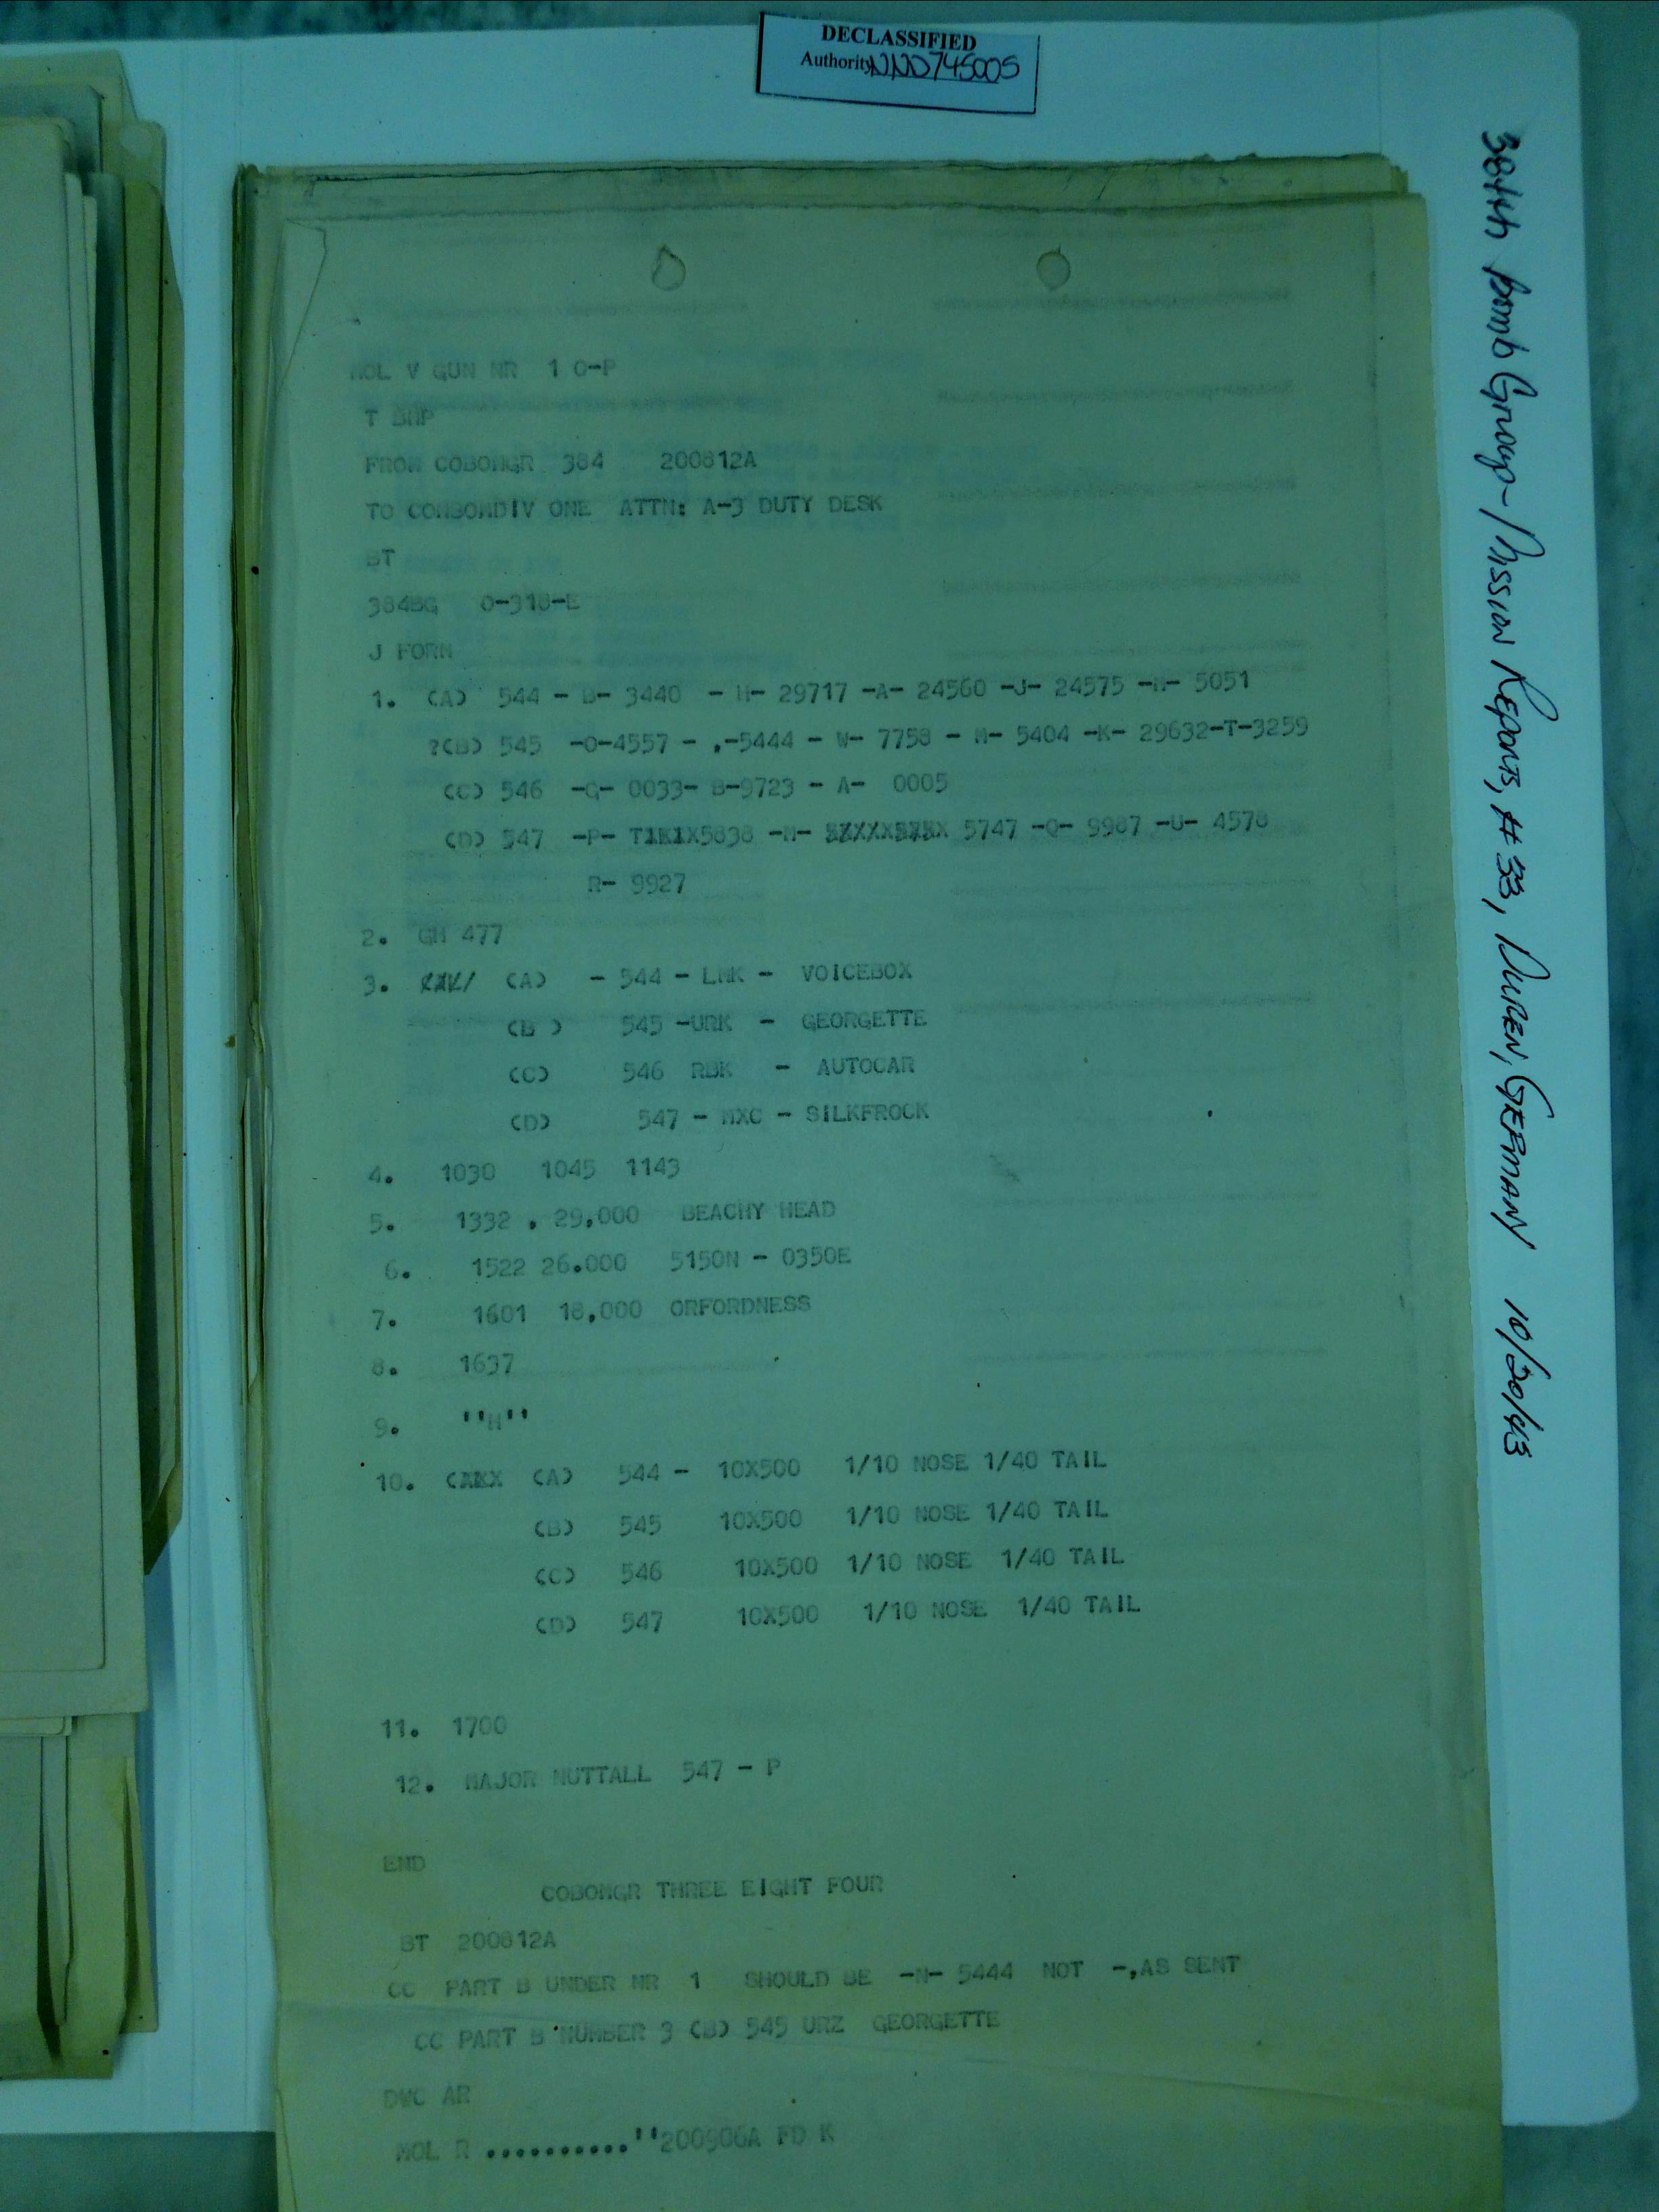 DECLASSIFIED
Authority NND745005
384th Bomb Group - Mission Reports, #33, Duren, Germany 10/20/43
MOL V GUN NR 1 O-P
T BMP
FROM COBOMGR 384 200812A
TO COMBOMDIV ONE ATTN: A-3 DUTY DESK
BT
384BG O-318-E
J FORM
1. (A) 544 - B- 3440 - H- 29717 -A- 24560 -J- 24575 -N- 5051
?(B) 545 -O-4557 - ,-5444 - W- 7758 - M- 5404 -K- 29632-T-3259
(C) 546 -G- 0033- B-9723 - A- 0005
(D) 547 -P- 5838 -M- 5747 -Q- 9987 -U- 4578
R- 9927
2. GH 477
3. (A) - 544 - LMK - VOICEBOX
(B ) 545 -URK - GEORGETTE
(C) 546 RBK - AUTOCAR
(D) 547 - MXC - SILKFROCK
4. 1030 1045 1143
5. 1332 . 29,000 BEACHY HEAD
6. 1522 26.000 5150N - 0350E
7. 1601 18,000 ORFORDNESS
8. 1637
9. ''H''
10. (A) 544 - 10X500 1/10 NOSE 1/40 TAIL
(B) 545 10X500 1/10 NOSE 1/40 TAIL
(C) 546 10X500 1/10 NOSE 1/40 TAIL
(D) 547 10X500 1/10 NOSE 1/40 TAIL
11. 1700
12. MAJOR NUTTALL 547 - P
END
COBOMGR THREE EIGHT FOUR
BT 200812A
CC PART B UNDER NR 1 SHOULD BE -N- 5444 NOT -,AS SENT
CC PART B NUMBER 3 (B) 545 URZ GEORGETTE
DWC AR
MOL R ..........''200906A FD K